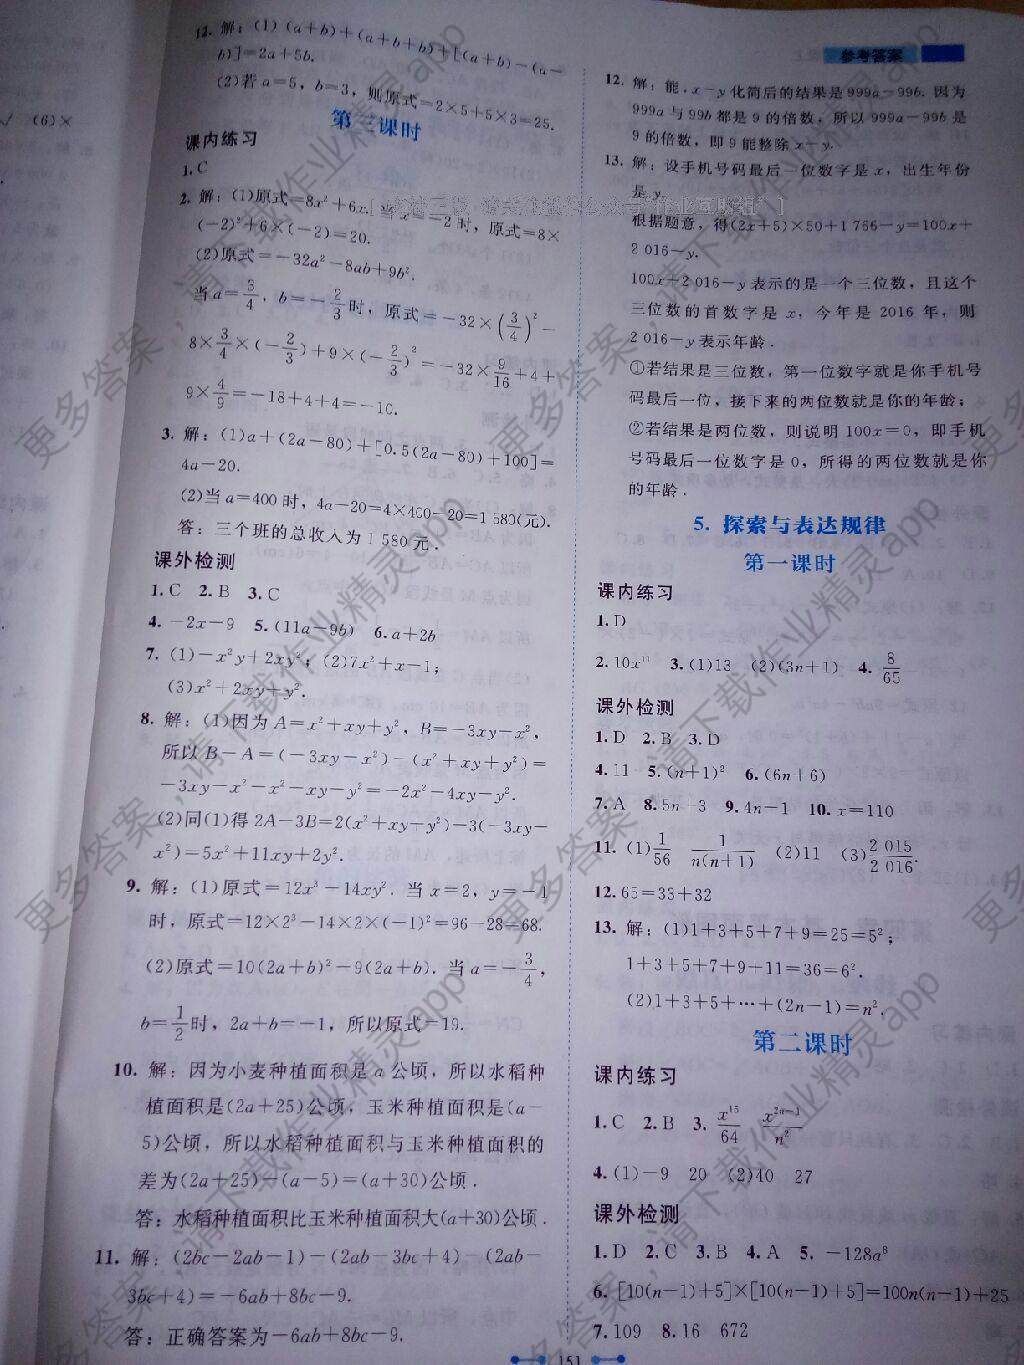 参考答案
√ (6)×
12. 解：(1)(a+b)+(a+b+b)+[(a+b)-(a-
b)]=2a+5b.
(2)若a=5，b=3，则原式=2×5+5×3=25.
第三课时
课内练习
1. C
2. 解：(1)原式=8x²+6x. 当x=-2时，原式=8×
(-2)²+6×(-2)=20.
(2)原式=-32a²-8ab+9b².
当a=3/4，b=-2/3时，原式=-32×(3/4)²-
8×3/4×(-2/3)+9×(-2/3)²=-32×9/16+4+
9×4/9=-18+4+4=-10.
3. 解：(1)a+(2a-80)+[0.5(2a-80)+100]=
4a-20.
(2)当a=400时，4a-20=4×400-20=1 580(元).
答：三个班的总收入为1 580元.
课外检测
1. C 2. B 3. C
4. -2x-9 5. (11a-9b) 6. a+2b
7. (1)-x²y+2xy²；(2)7x²+x-1；
(3)x²+2xy+y².
8. 解：(1)因为A=x²+xy+y²，B=-3xy-x²，
所以B-A=(-3xy-x²)-(x²+xy+y²)=
-3xy-x²-x²-xy-y²=-2x²-4xy-y².
(2)同(1)得2A-3B=2(x²+xy+y²)-3(-3xy-
x²)=5x²+11xy+2y².
9. 解：(1)原式=12x³-14xy². 当x=2，y=-1
时，原式=12×2³-14×2×(-1)²=96-28=68.
(2)原式=10(2a+b)²-9(2a+b). 当a=-3/4，
b=1/2时，2a+b=-1，所以原式=19.
10. 解：因为小麦种植面积是a公顷，所以水稻种
植面积是(2a+25)公顷，玉米种植面积是(a-
5)公顷，所以水稻种植面积与玉米种植面积的
差为(2a+25)-(a-5)=(a+30)公顷.
答：水稻种植面积比玉米种植面积大(a+30)公顷.
11. 解：(2bc-2ab-1)-(2ab-3bc+4)-(2ab-
3bc+4)=-6ab+8bc-9.
答：正确答案为-6ab+8bc-9.
12. 解：能，x-y化简后的结果是999a-99b. 因为
999a与99b都是9的倍数，所以999a-99b是
9的倍数，即9能整除x-y.
13. 解：设手机号码最后一位数字是x，出生年份
是y.
根据题意，得(2x+5)×50+1 766-y=100x+
2 016-y.
100x+2 016-y表示的是一个三位数，且这个
三位数的首数字是x，今年是2016年，则
2 016-y表示年龄.
①若结果是三位数，第一位数字就是你手机号
码最后一位，接下来的两位数就是你的年龄；
②若结果是两位数，则说明100x=0，即手机
号码最后一位数字是0，所得的两位数就是你
的年龄.
5. 探索与表达规律
第一课时
课内练习
1. D
2. 10x¹⁰ 3. (1)13 (2)(3n+1) 4. 8/65
课外检测
1. D 2. B 3. D
4. 11 5. (n+1)² 6. (6n+6)
7. A 8. 5n+3 9. 4n-1 10. x=110
11. (1)1/56 1/n(n+1) (2)11 (3)2 015/2 016.
12. 65=33+32
13. 解：(1)1+3+5+7+9=25=5²；
1+3+5+7+9+11=36=6².
(2)1+3+5+…+(2n-1)=n².
第二课时
课内练习
1. C 2. B 3. x¹⁵/64 x²ⁿ⁻¹/n²
4. (1)-9 20 (2)40 27
课外检测
1. D 2. C 3. B 4. A 5. -128a⁸
6. [10(n-1)+5]×[10(n-1)+5]=100n(n-1)+25
7. 109 8. 16 672
151
更多答案，请下载作业精灵app
更多答案，请下载作业精灵app
更多答案，请下载作业精灵app
更多答案，请下载作业精灵app